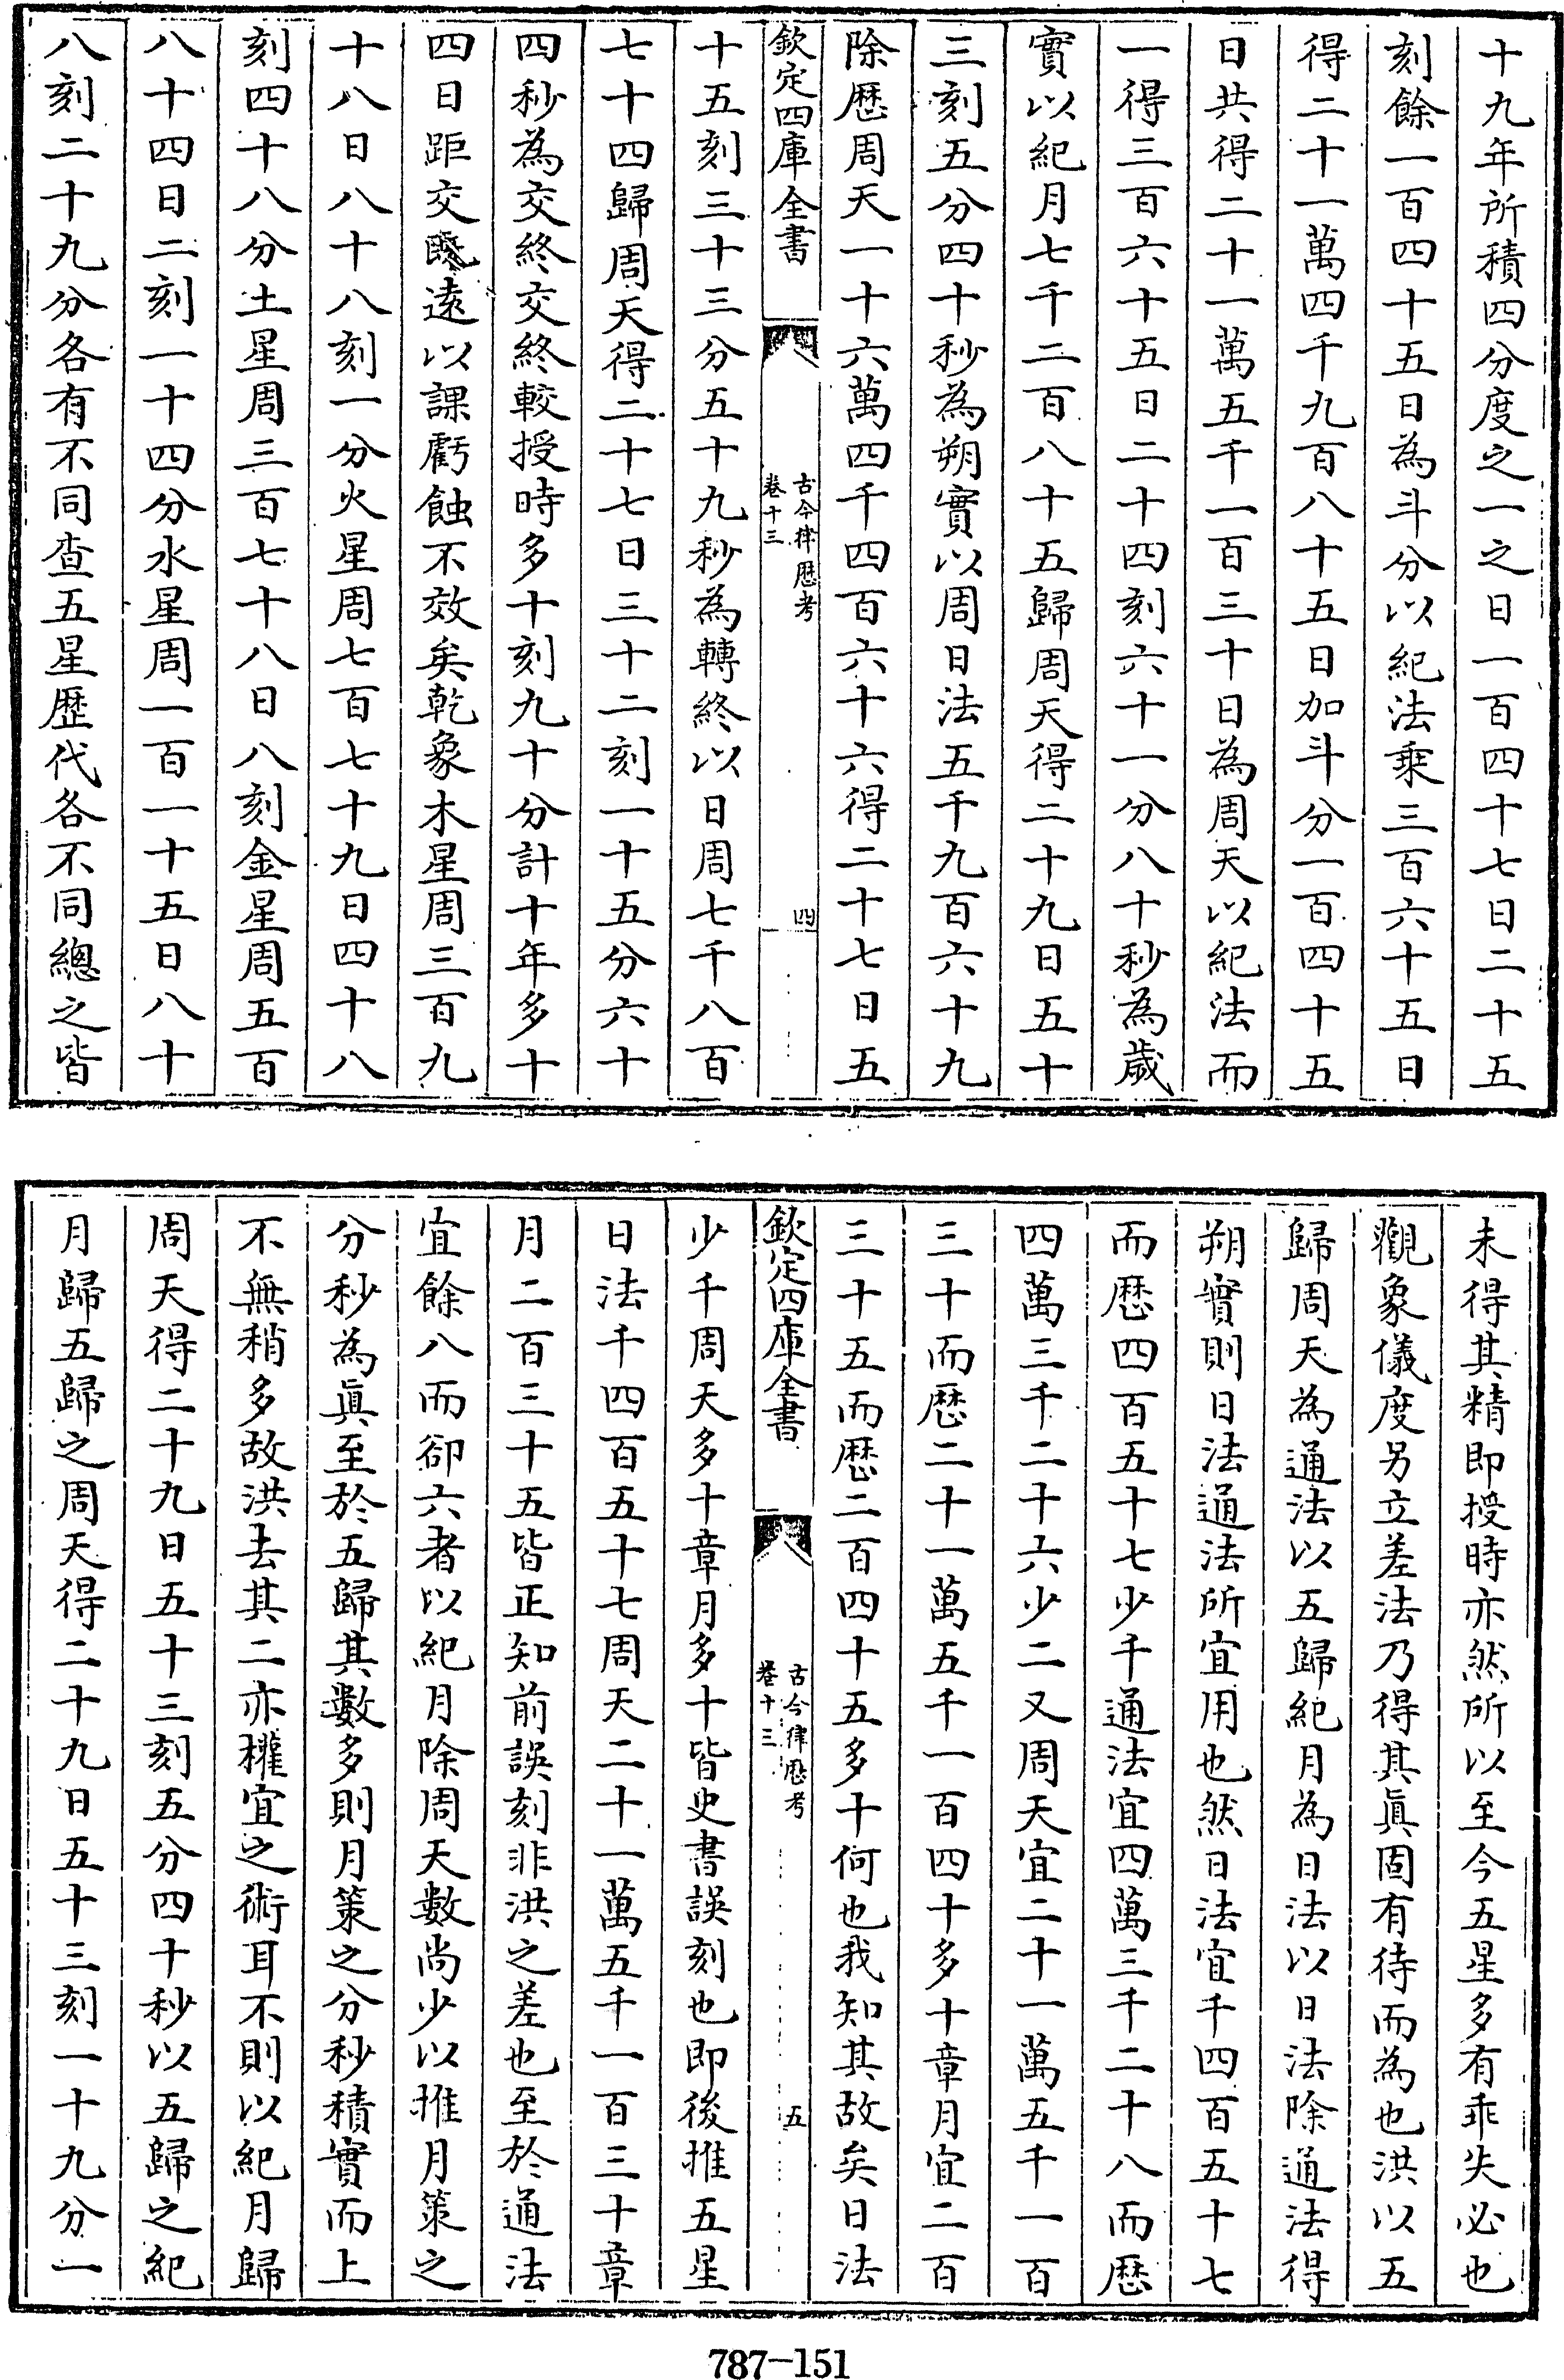 十九年所積四分度之一之日一百四十七日二十五
刻餘一百四十五日為斗分以紀法乗三百六十五日
得二十一萬四千九百八十五日加斗分一百四十五
日共得二十一萬五千一百三十日為周天以紀法而
一得三百六十五日二十四刻六十一分八十秒為歲
實以紀月七千二百八十五歸周天得二十九日五十
三刻五分四十秒為朔實以周日法五千九百六十九
除厯周天一十六萬四千四百六十六得二十七日五
欽定四庫全書
古今律厯考
卷十三
四
十五刻三十三分五十九秒為轉終以日周七千八百
七十四歸周天得二十七日三十二刻一十五分六十
四秒為交終交終較授時多十刻九十分計十年多十
四日距交既遠以課虧蝕不效矣乾象木星周三百九
十八日八十八刻一分火星周七百七十九日四十八
刻四十八分土星周三百七十八日八刻金星周五百
八十四日二刻一十四分水星周一百一十五日八十
八刻二十九分各有不同查五星歴代各不同總之皆
未得其精即授時亦然所以至今五星多有乖失必也
觀象儀度另立差法乃得其真固有待而為也洪以五
歸周天為通法以五歸紀月為日法以日法除通法得
朔實則日法通法所宜用也然日法宜千四百五十七
而厯四百五十七少千通法宜四萬三千二十八而厯
四萬三千二十六少二又周天宜二十一萬五千一百
三十而厯二十一萬五千一百四十多十章月宜二百
三十五而厯二百四十五多十何也我知其故矣日法
欽定四庫全書
古今律厯考
卷十三
五
少千周天多十章月多十皆史書誤刻也即後推五星
日法千四百五十七周天二十一萬五千一百三十章
月二百三十五皆正知前誤刻非洪之差也至於通法
宜餘八而卻六者以紀月除周天數尚少以推月策之
分秒為真至於五歸其數多則月策之分秒積實而上
不無稍多故洪去其二亦權宜之術耳不則以紀月歸
周天得二十九日五十三刻五分四十秒以五歸之紀
月歸五歸之周天得二十九日五十三刻一十九分一
787-151